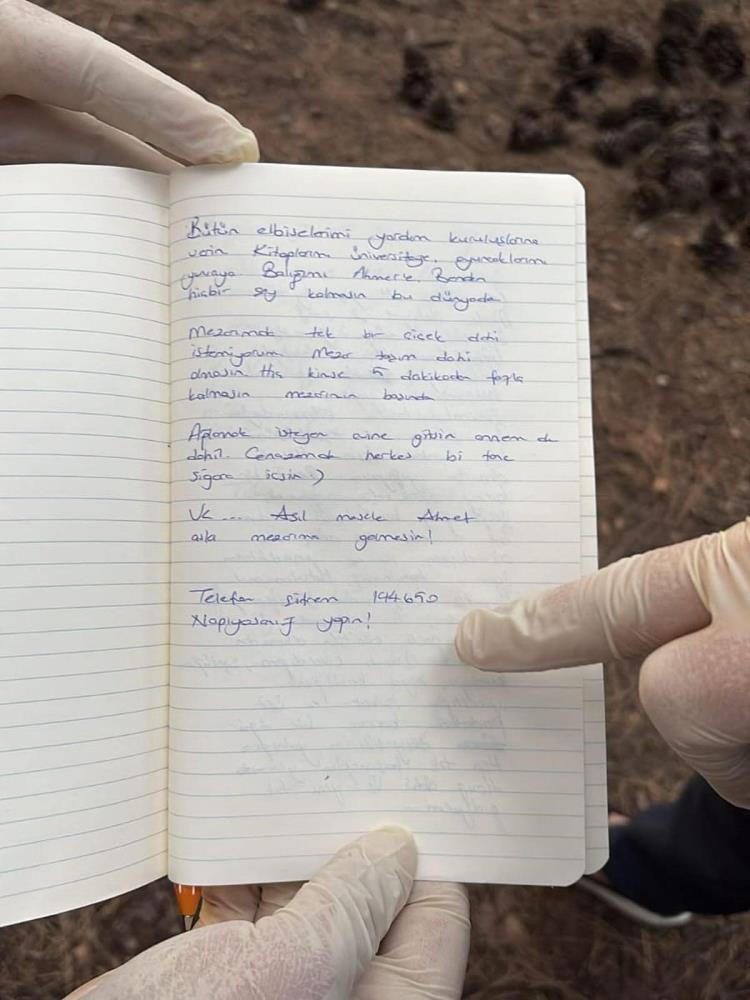 Bütün elbiselerimi yardım kuruluşlarına
verin Kitaplarım üniversiteye, oyuncaklarım
yuvaya Balığımı Ahmet'e. Benden
hiçbir şey kalmasın bu dünyada
Mezarımda tek bir çiçek dahi
istemiyorum Mezar taşım dahi
olmasın Hiç kimse 5 dakikadan fazla
kalmasın mezarımın başında
Ağlamak isteyen evine gitsin annem de
dahil. Cenazemde herkes bi tane
sigara içsin :)
Ve ... Asıl mesele Ahmet
asla mezarıma gelmesin!
Telefon şifrem 194650
Napıyosanız yapın!